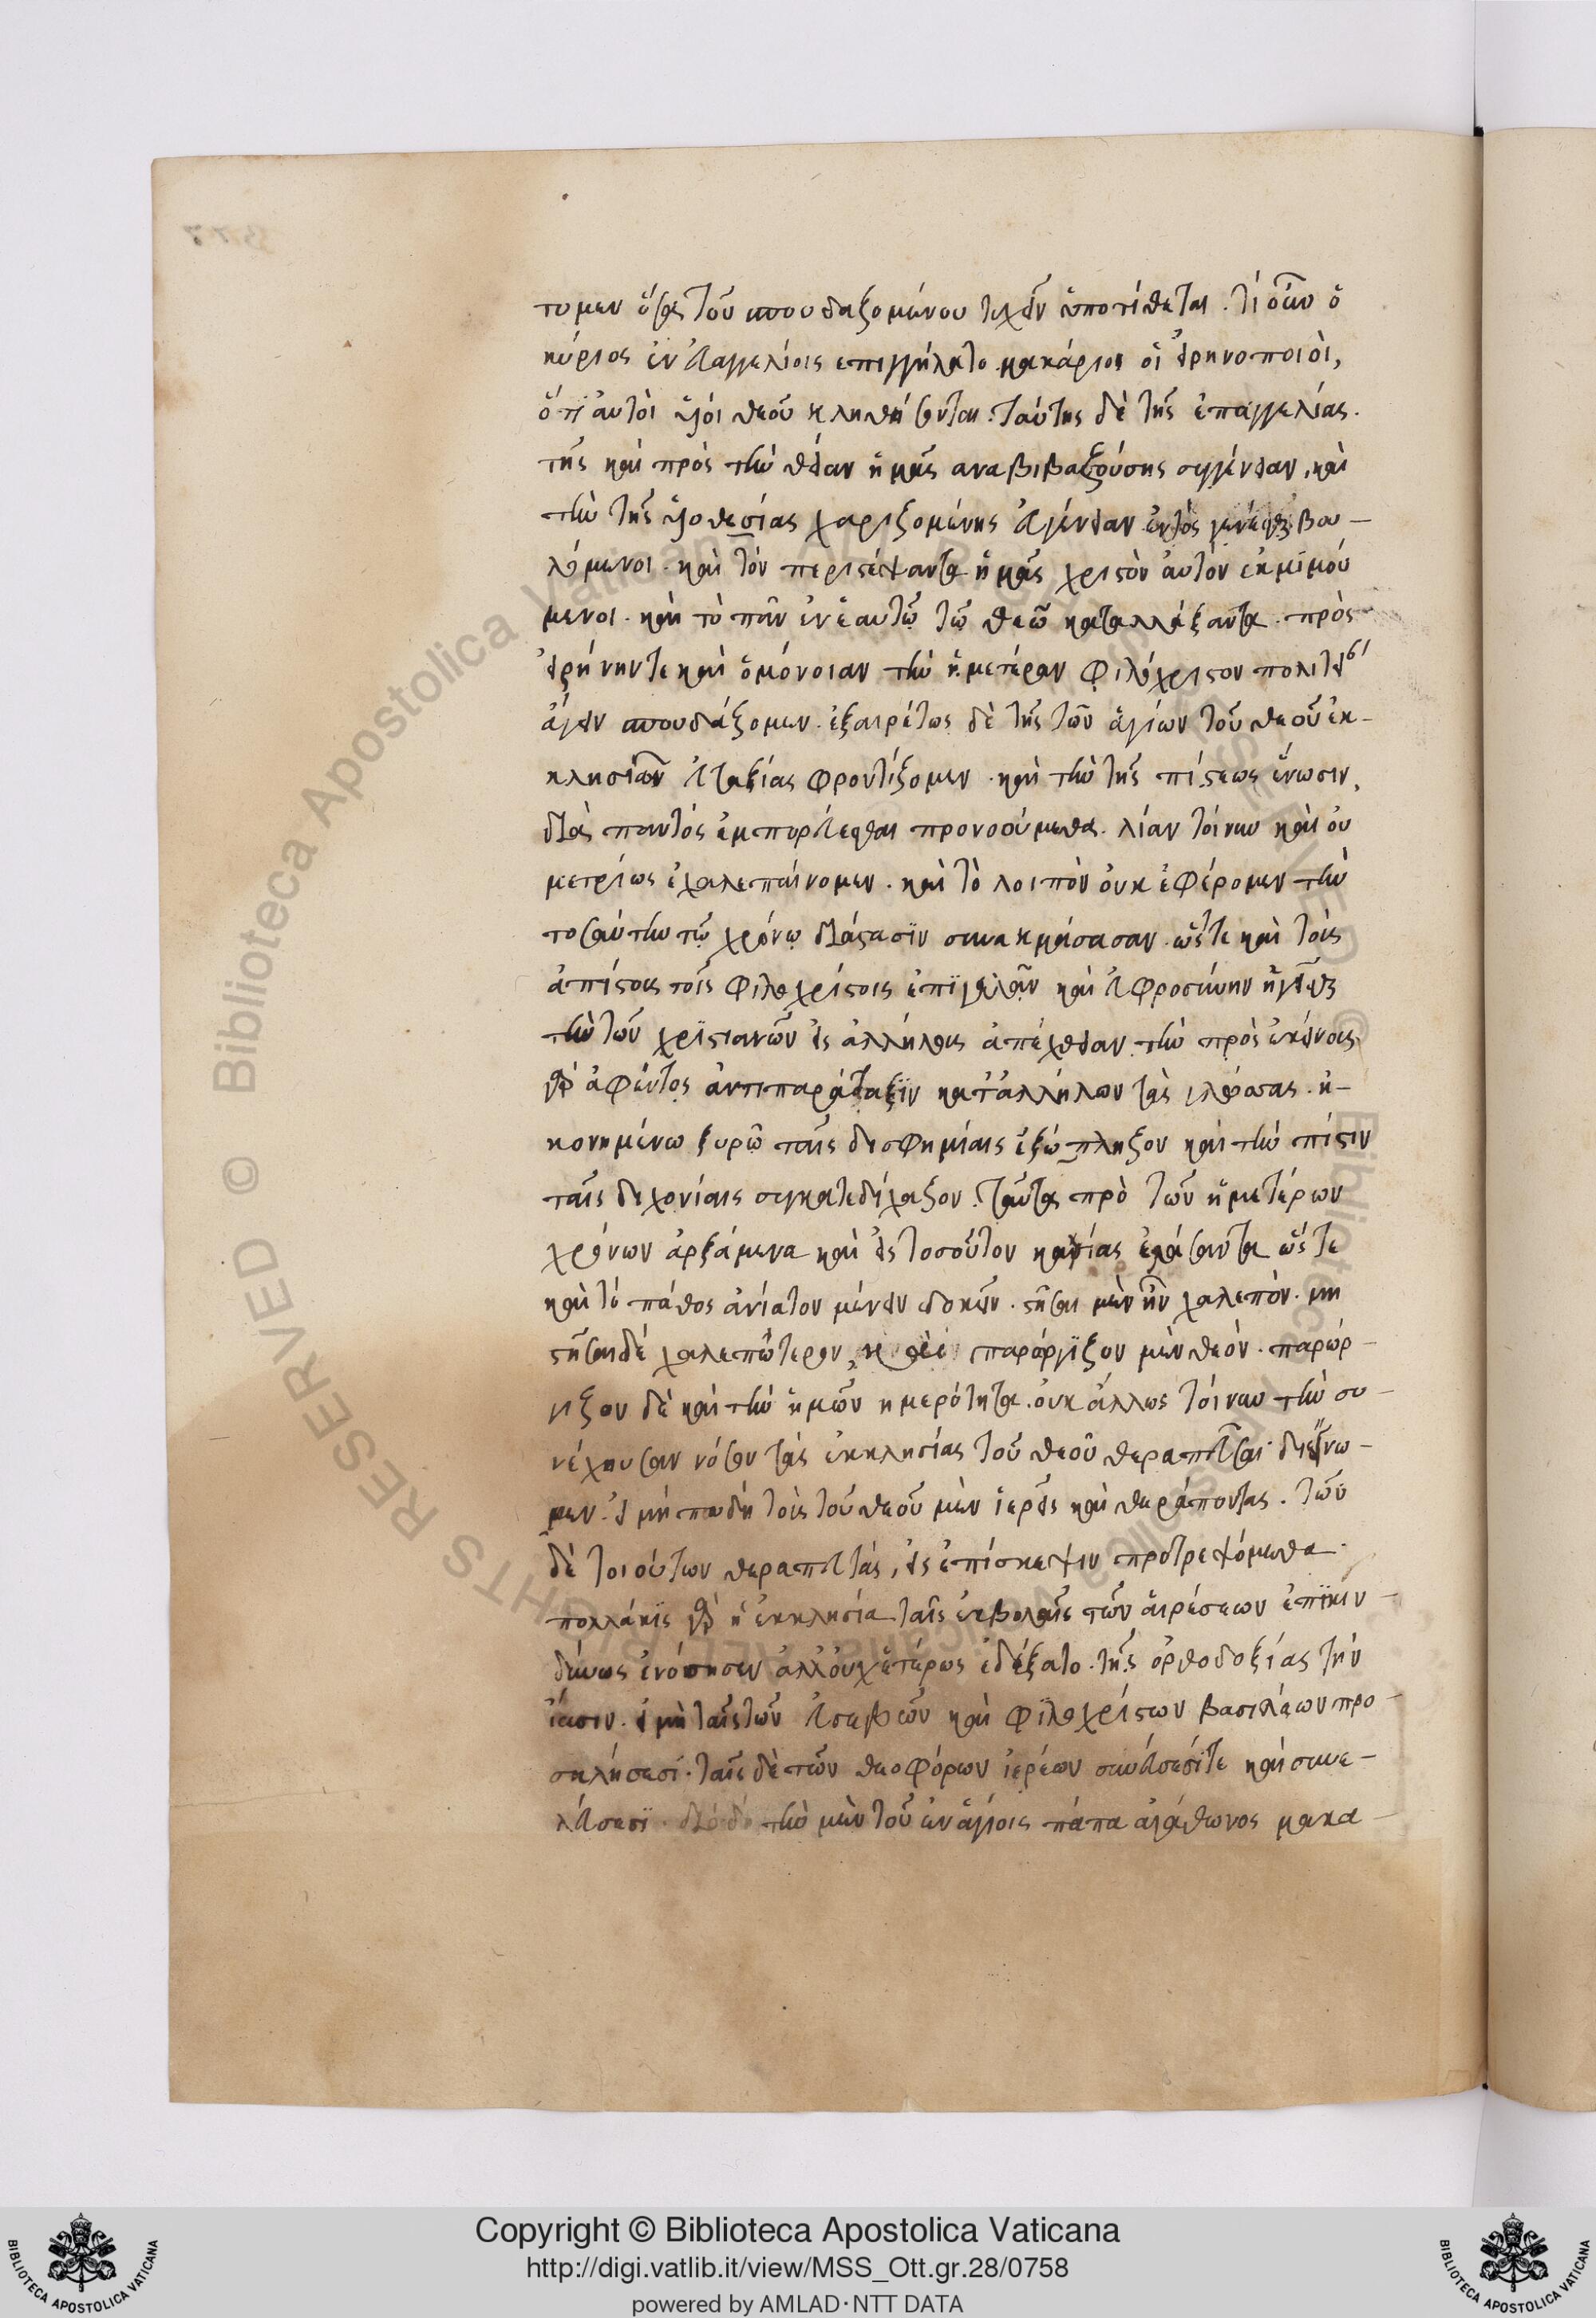 τομεν ὅσα τοῦ σπουδαζομένου τυχεῖν ὑποτίθεται. τί οὖν ὁ
κύριος ἐν εὐαγγελίοις επηγγήλατο. μακάριοι οἱ εἰρηνοποιὸι,
ὅτι ἀυτὸι ὑϊὸι θεοῦ κληθήσονται. ταύτης δὲ τῆς ἐπαγγελίας.
τῆς καὶ πρὸς τὴν θείαν ἡμᾶς αναβιβαζούσης συγγένειαν, καὶ
τὴν τῆς ὑϊοθεσίας χαριζομένης εὐγένειαν. ἐντὸς γενέσθαι βου-
λόμενοι. καὶ τὸν περιστέψαντα ἡμᾶς χριστὸν ἀυτὸν ἐκμϊμού
μενοι. καὶ τὸ πᾶν ἐν ἑαυτῷ τῷ θεῷ καταλλάξαντα. πρὸς
εἰρήνην τε καὶ ὁμόνοιαν τὴν ἡμετέραν φιλόχριστον πολιτεί
ἄγειν σπουδάζομεν. ἐξαιρέτως δὲ τῆς τῶν ἁγίων τοῦ θεοῦ ἐκ-
κλησιῶν εὐταξίας φροντίζομεν. καὶ τὴν τῆς πίστεως ἕνωσιν,
διὰ παντὸς ἐμπορεύεσθαι προνοούμεθα. λίαν τοίνυν καὶ ου
μετρίως ἐχαλεπαίνομεν. καὶ τὸ λοιπὸν ὀυκ ἐφέρομεν τὴν
τοσαύτην τῷ χρόνῳ διάστασϊν συνακμάσασαν. ὥστε καὶ τοὺς
ἀπίστους τοῖς φιλοχρίστοις ἐπϊγελᾶν καὶ εὐφροσύνην ἡγεῖσθαι
τὴν τῶν χρϊστιανῶν εἰς ἀλλήλους ἀπέχθειαν. τὴν πρὸς ἐκείνους
γὰρ ἀφέντες ἀντιπαράταξϊν κατἀλλήλων τὰς γλώσσας. ἠ-
κονημένω ξυρῷ ταῖς δυσφημίαις ἐξώπληξον καὶ τὴν πίστιν
ταῖς διχονίαις συγκατεδίχαζον. ταῦτα πρὸ τῶν ἡμετέρων
χρόνων ἀρξάμενα καὶ εἰς τοσοῦτον κακίας ἐλάσαντα ὥστε
καὶ τὸ πάθος ἀνίατον μένειν δοκεῖν. στῆσαι μὲν ἦν χαλεπὸν. μη
στῆσαι δὲ χαλεπώτερον, παρόργϊζον μὲν θεὸν. παρώρ-
γιζον δὲ καὶ τὴν ἡμῶν ημερότητα. ὀυκ ἄλλως τοίνυν τὴν συ-
νέχουσαν νόσον τὰς ἐκκλησίας τοῦ θεοῦ θεραπεῦσαι διέγνω-
μεν. εἰ μή που δὴ τοὺς τοῦ θεοῦ μὲν ἱερεῖς καὶ θεράποντας. τῶν
δὲ τοιούτων θεραπευτάς, εἰς ἐπίσκεψιν προτρεψόμεθα.
πολλάκϊς γὰρ ἡ ἐκκλησία ταῖς ἐκβολαῖς τῶν ἁιρέσεων ἐπϊκιν-
δύνως ἐνόσησεν ἀλλὀυχἑτέρως ἐδέξατο. τῆς ὀρθοδοξίας τὴν
ἴασιν. εἰ μὴ ταῖς τῶν εὐσεβῶν καὶ φϊλοχρίστων βασιλέων προ-
σκλήσεσί. ταῖς δὲ τῶν θεοφόρων ἱερέων συνεύσεσί τε καὶ συνε-
λεύσεσϊ. τὴν μὲν τοῦ ἐν ἁγίοις πάπα ἀγάθωνος μακα-
Copyright © Biblioteca Apostolica Vaticana
http://digi.vatlib.it/view/MSS_Ott.gr.28/0758
powered by AMLAD·NTT DATA